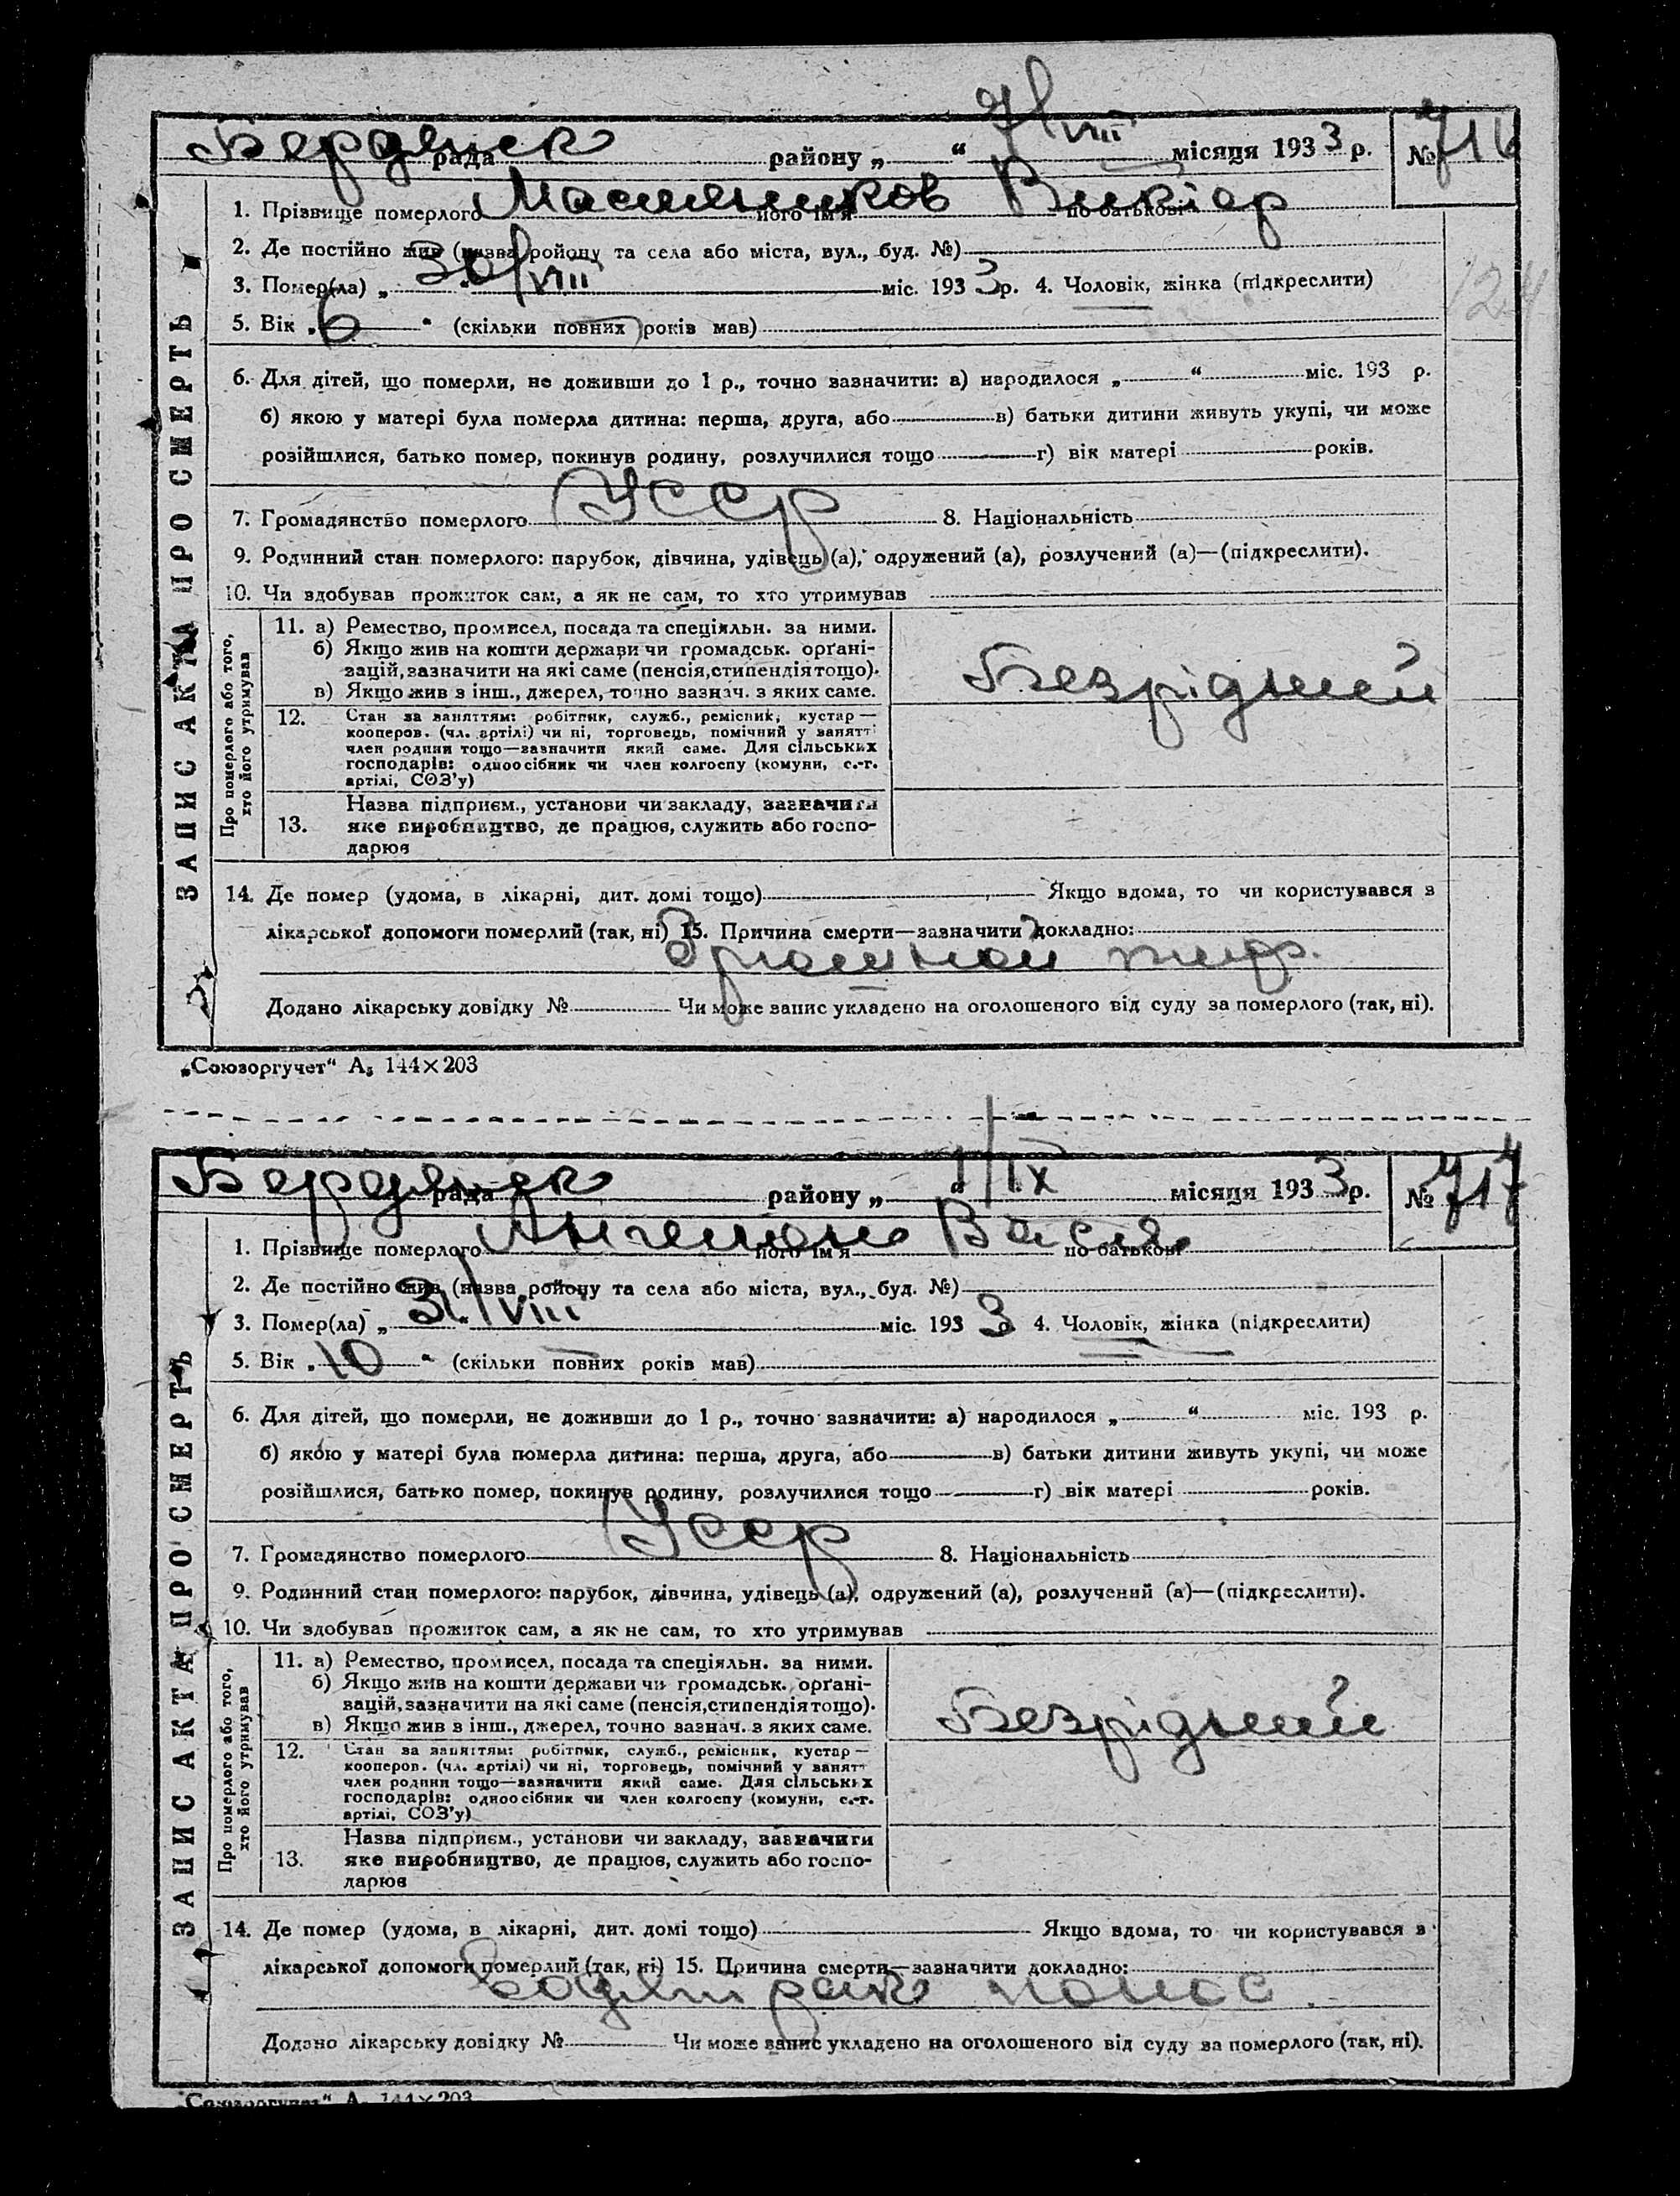 Бердянск рада району „ “ VIII місяця 1933 р. № 716
1. Прізвище померлого Масленников його ім'я Виктор по батькові
2. Де постійно жив (назва ройону та села або міста, вул., буд. №)
3. Помер(ла) „ 30/VIII “ міс. 1933 р. 4. Чоловік, жінка (підкреслити)
5. Вік „ 6 “ (скільки повних років мав)
6. Для дітей, що померли, не доживши до 1 р., точно зазначити: а) народилося „ “ міс. 193 р.
б) якою у матері була померла дитина: перша, друга, або в) батьки дитини живуть укупі, чи може
розійшлися, батько помер, покинув родину, розлучилися тощо г) вік матері років.
7. Громадянство померлого Усср 8. Національність
9. Родинний стан померлого: парубок, дівчина, удівець (а), одружений (а), розлучений (а)—(підкреслити).
10. Чи здобував прожиток сам, а як не сам, то хто утримував
ЗАПИС АКТА ПРО СМЕРТЬ
Про померлого або того,
хто його утримував
11. а) Ремество, промисел, посада та спеціяльн. за ними.
б) Якщо жив на кошти держави чи громадськ. орґані-
зацій, зазначити на які саме (пенсія, стипендія тощо).
в) Якщо жив з інш., джерел, точно зазнач. з яких саме.
Безрідний
12. Стан за заняттям: робітник, служб., ремісник, кустар —
кооперов. (чл. артілі) чи ні, торговець, помічний у занятті
член родини тощо—зазначити який саме. Для сільських
господарів: одноосібник чи член колгоспу (комуни, с.-г.
артілі, СОЗ'у)
13. Назва підприєм., установи чи закладу, зазначити
яке виробництво, де працює, служить або госпо-
дарює
14. Де помер (удома, в лікарні, дит. домі тощо) Якщо вдома, то чи користувався з
лікарської допомоги померлий (так, ні) 15. Причина смерти—зазначити докладно:
Додано лікарську довідку № Чи може запис укладено на оголошеного від суду за померлого (так, ні).
„Союзоргучет“ А₅ 144×203
Бердянск рада району „ “ 1/IX місяця 1933 р. № 717
1. Прізвище померлого його ім'я Вася по батькові
2. Де постійно жив (назва ройону та села або міста, вул., буд. №)
3. Помер(ла) „ 31/VIII “ міс. 1933 4. Чоловік, жінка (підкреслити)
5. Вік „ 10 “ (скільки повних років мав)
6. Для дітей, що померли, не доживши до 1 р., точно зазначити: а) народилося „ “ міс. 193 р.
б) якою у матері була померла дитина: перша, друга, або в) батьки дитини живуть укупі, чи може
розійшлися, батько помер, покинув родину, розлучилися тощо г) вік матері років.
7. Громадянство померлого Усср 8. Національність
9. Родинний стан померлого: парубок, дівчина, удівець (а), одружений (а), розлучений (а)—(підкреслити).
10. Чи здобував прожиток сам, а як не сам, то хто утримував
ЗАПИС АКТА ПРО СМЕРТЬ
Про померлого або того,
хто його утримував
11. а) Ремество, промисел, посада та спеціяльн. за ними.
б) Якщо жив на кошти держави чи громадськ. орґані-
зацій, зазначити на які саме (пенсія, стипендія тощо).
в) Якщо жив з інш., джерел, точно зазнач. з яких саме.
Безрідний
12. Стан за заняттям: робітник, служб., ремісник, кустар —
кооперов. (чл. артілі) чи ні, торговець, помічний у занятт
член родини тощо—зазначити який саме. Для сільських
господарів: одноосібник чи член колгоспу (комуни, с.-г.
артілі, СОЗ'у)
13. Назва підприєм., установи чи закладу, зазначити
яке виробництво, де працює, служить або госпо-
дарює
14. Де помер (удома, в лікарні, дит. домі тощо) Якщо вдома, то чи користувався з
лікарської допомоги померлий (так, ні) 15. Причина смерти—зазначити докладно:
понос
Додано лікарську довідку № Чи може запис укладено на оголошеного від суду за померлого (так, ні).
„Союзоргучет“ А₅ 144×203